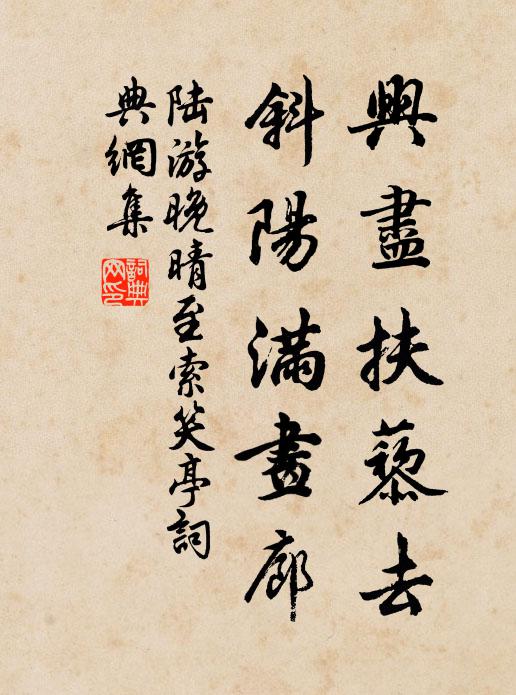 興盡扶藜去
斜陽滿畫廊
陆游晚晴至索笑亭詞
典網集
詞典
网印